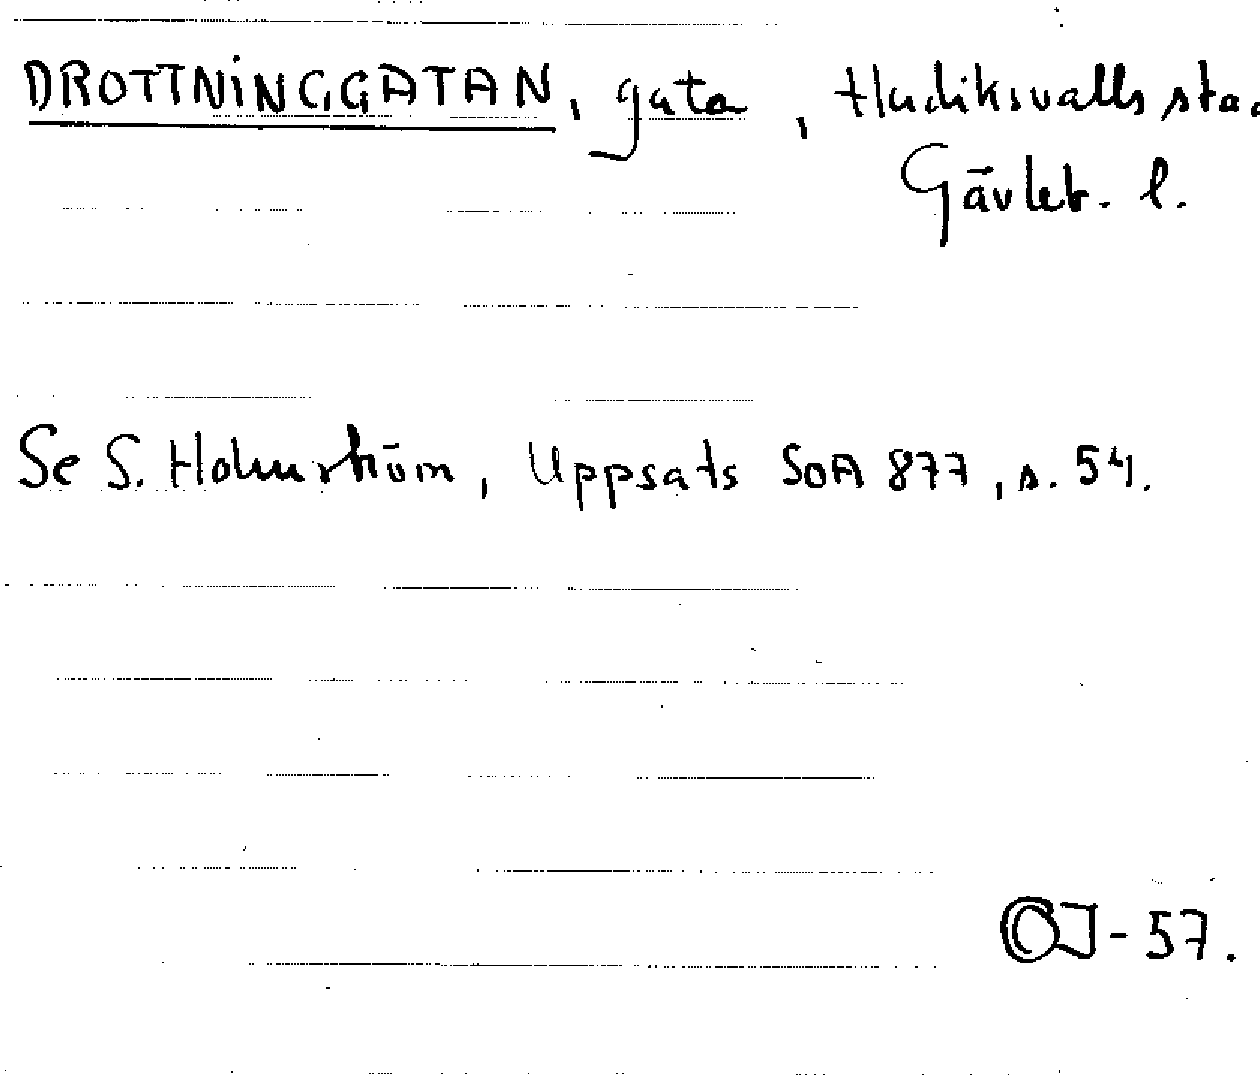 DROTTNINGGATAN, gata, Hudiksvalls stad
Gävleb. l.
Se S. Holmström, Uppsats SOA 877, s. 54.
OJ-57.